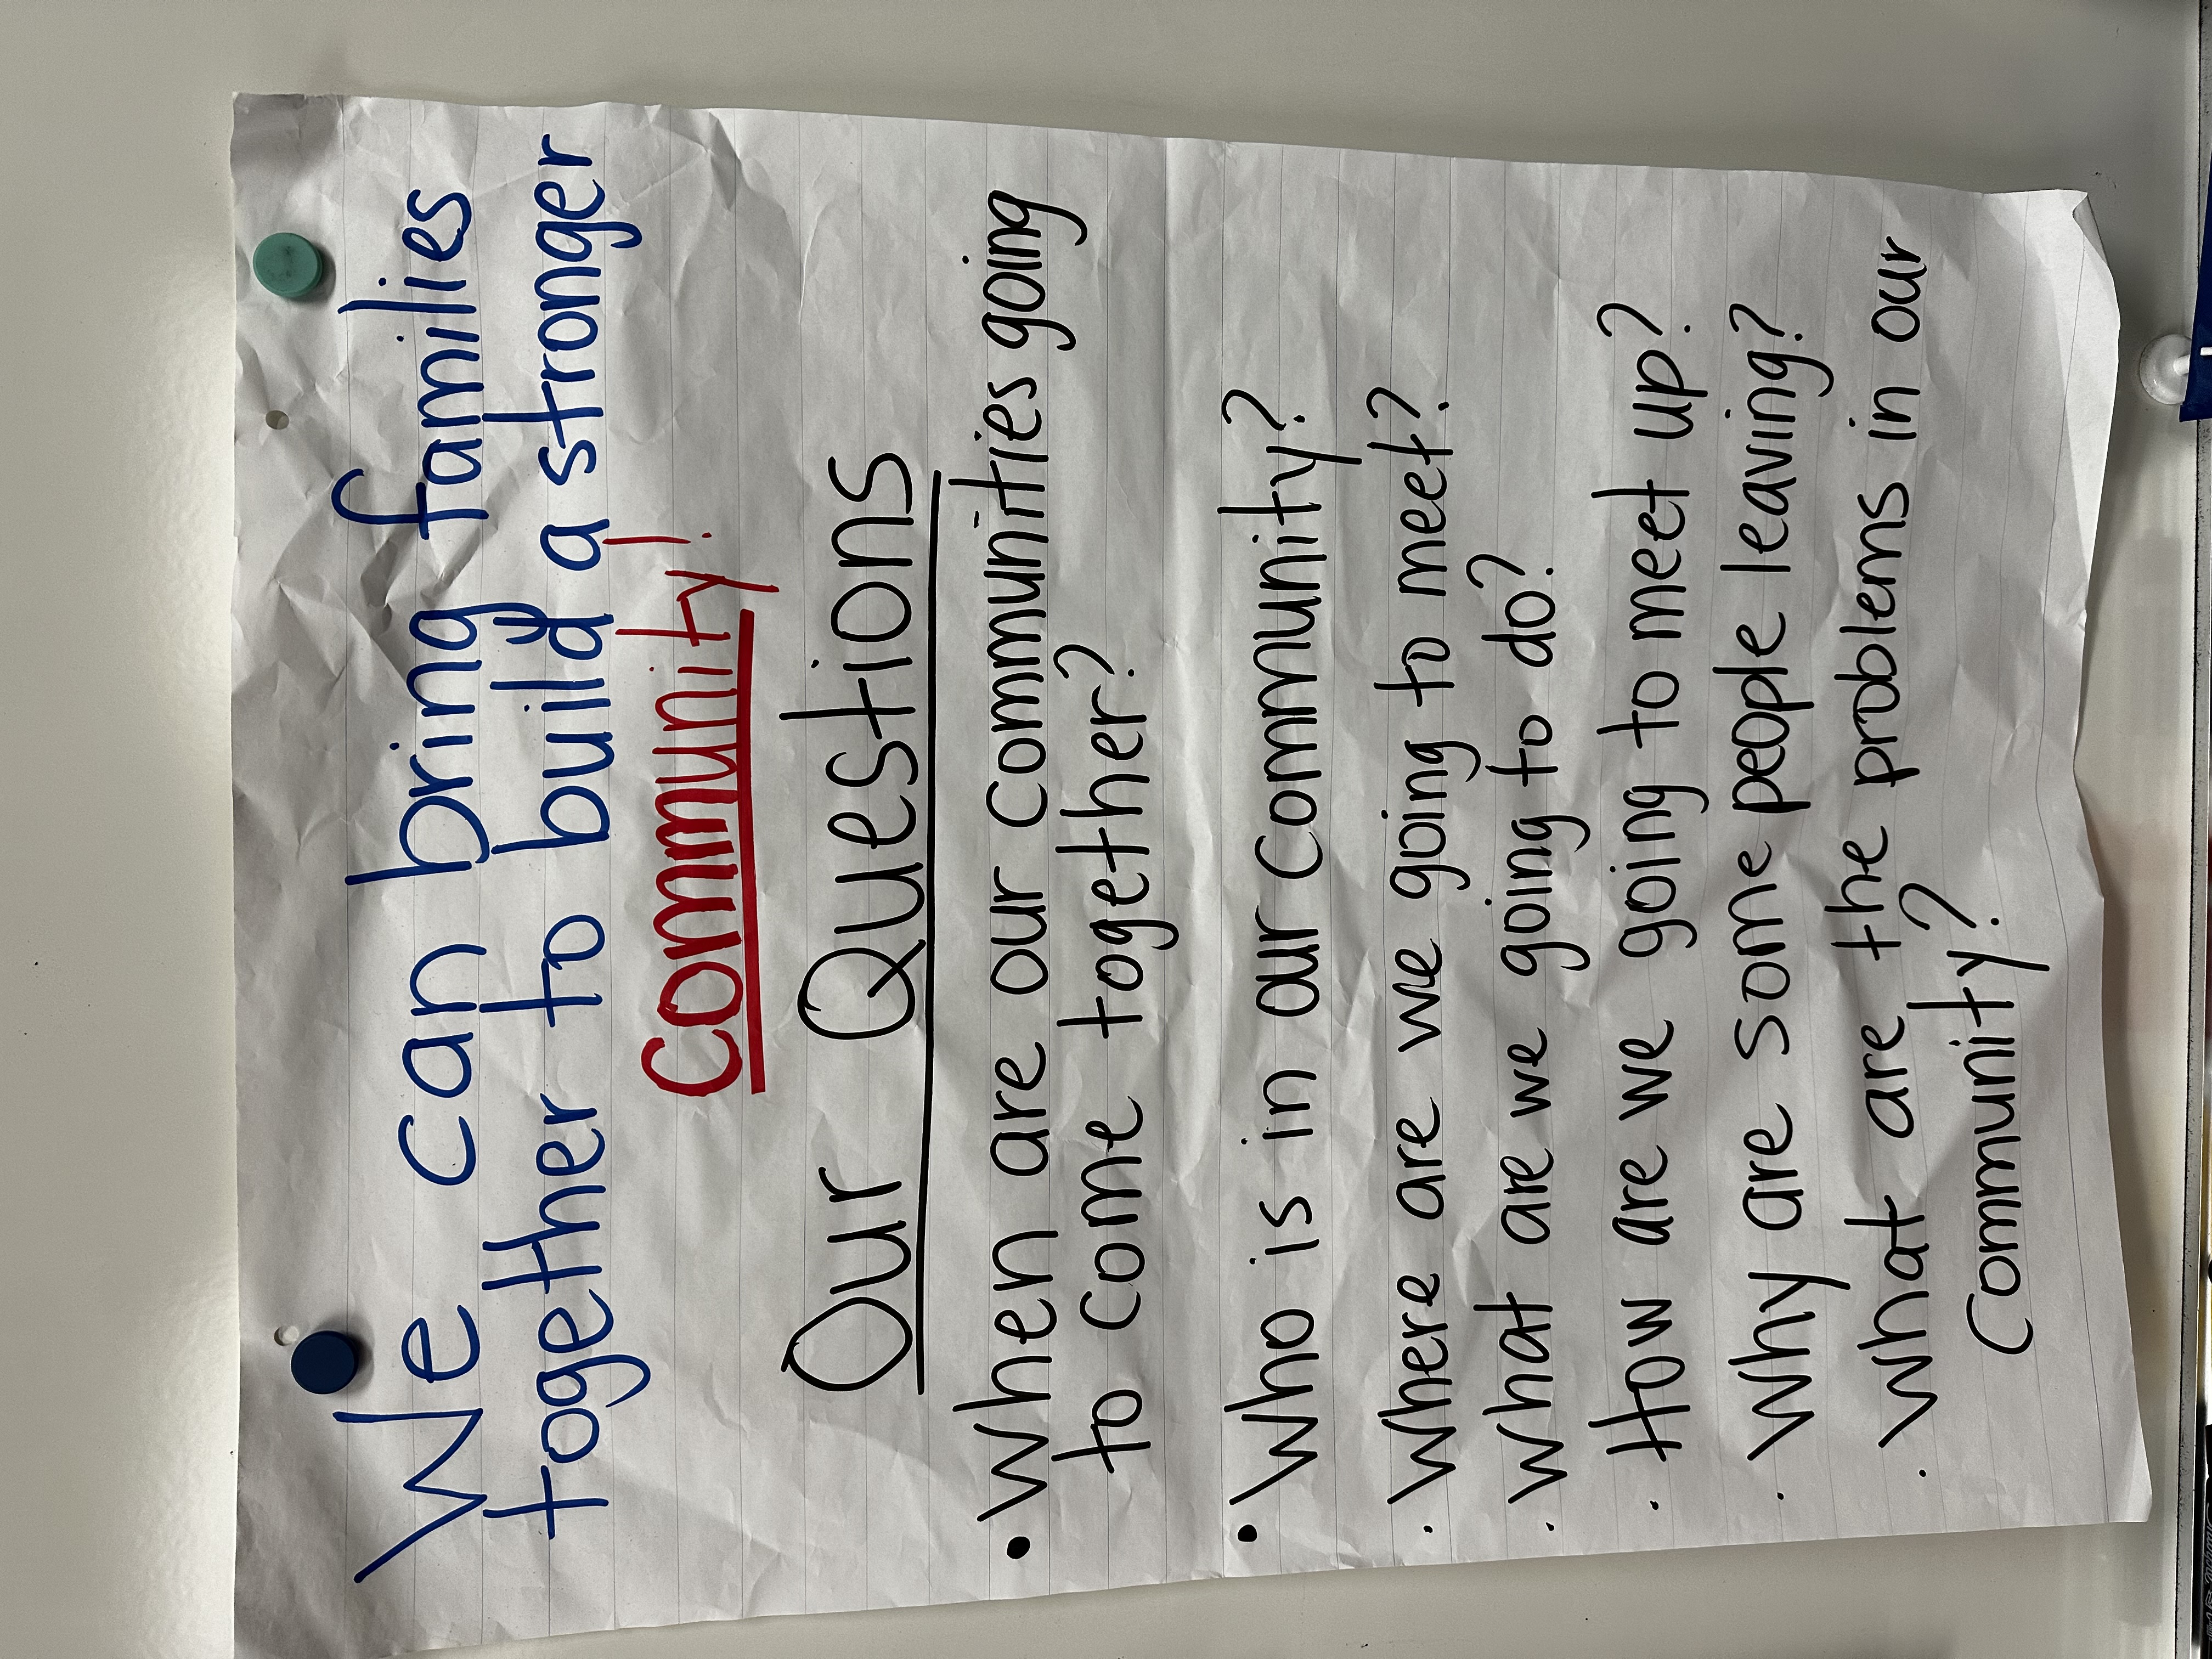 We can bring families
together to build a stronger
community!
Our Questions
• When are our communities going
to come together?
• Who is in our community?
• Where are we going to meet?
• What are we going to do?
• How are we going to meet up?
• Why are some people leaving?
• What are the problems in our
community?